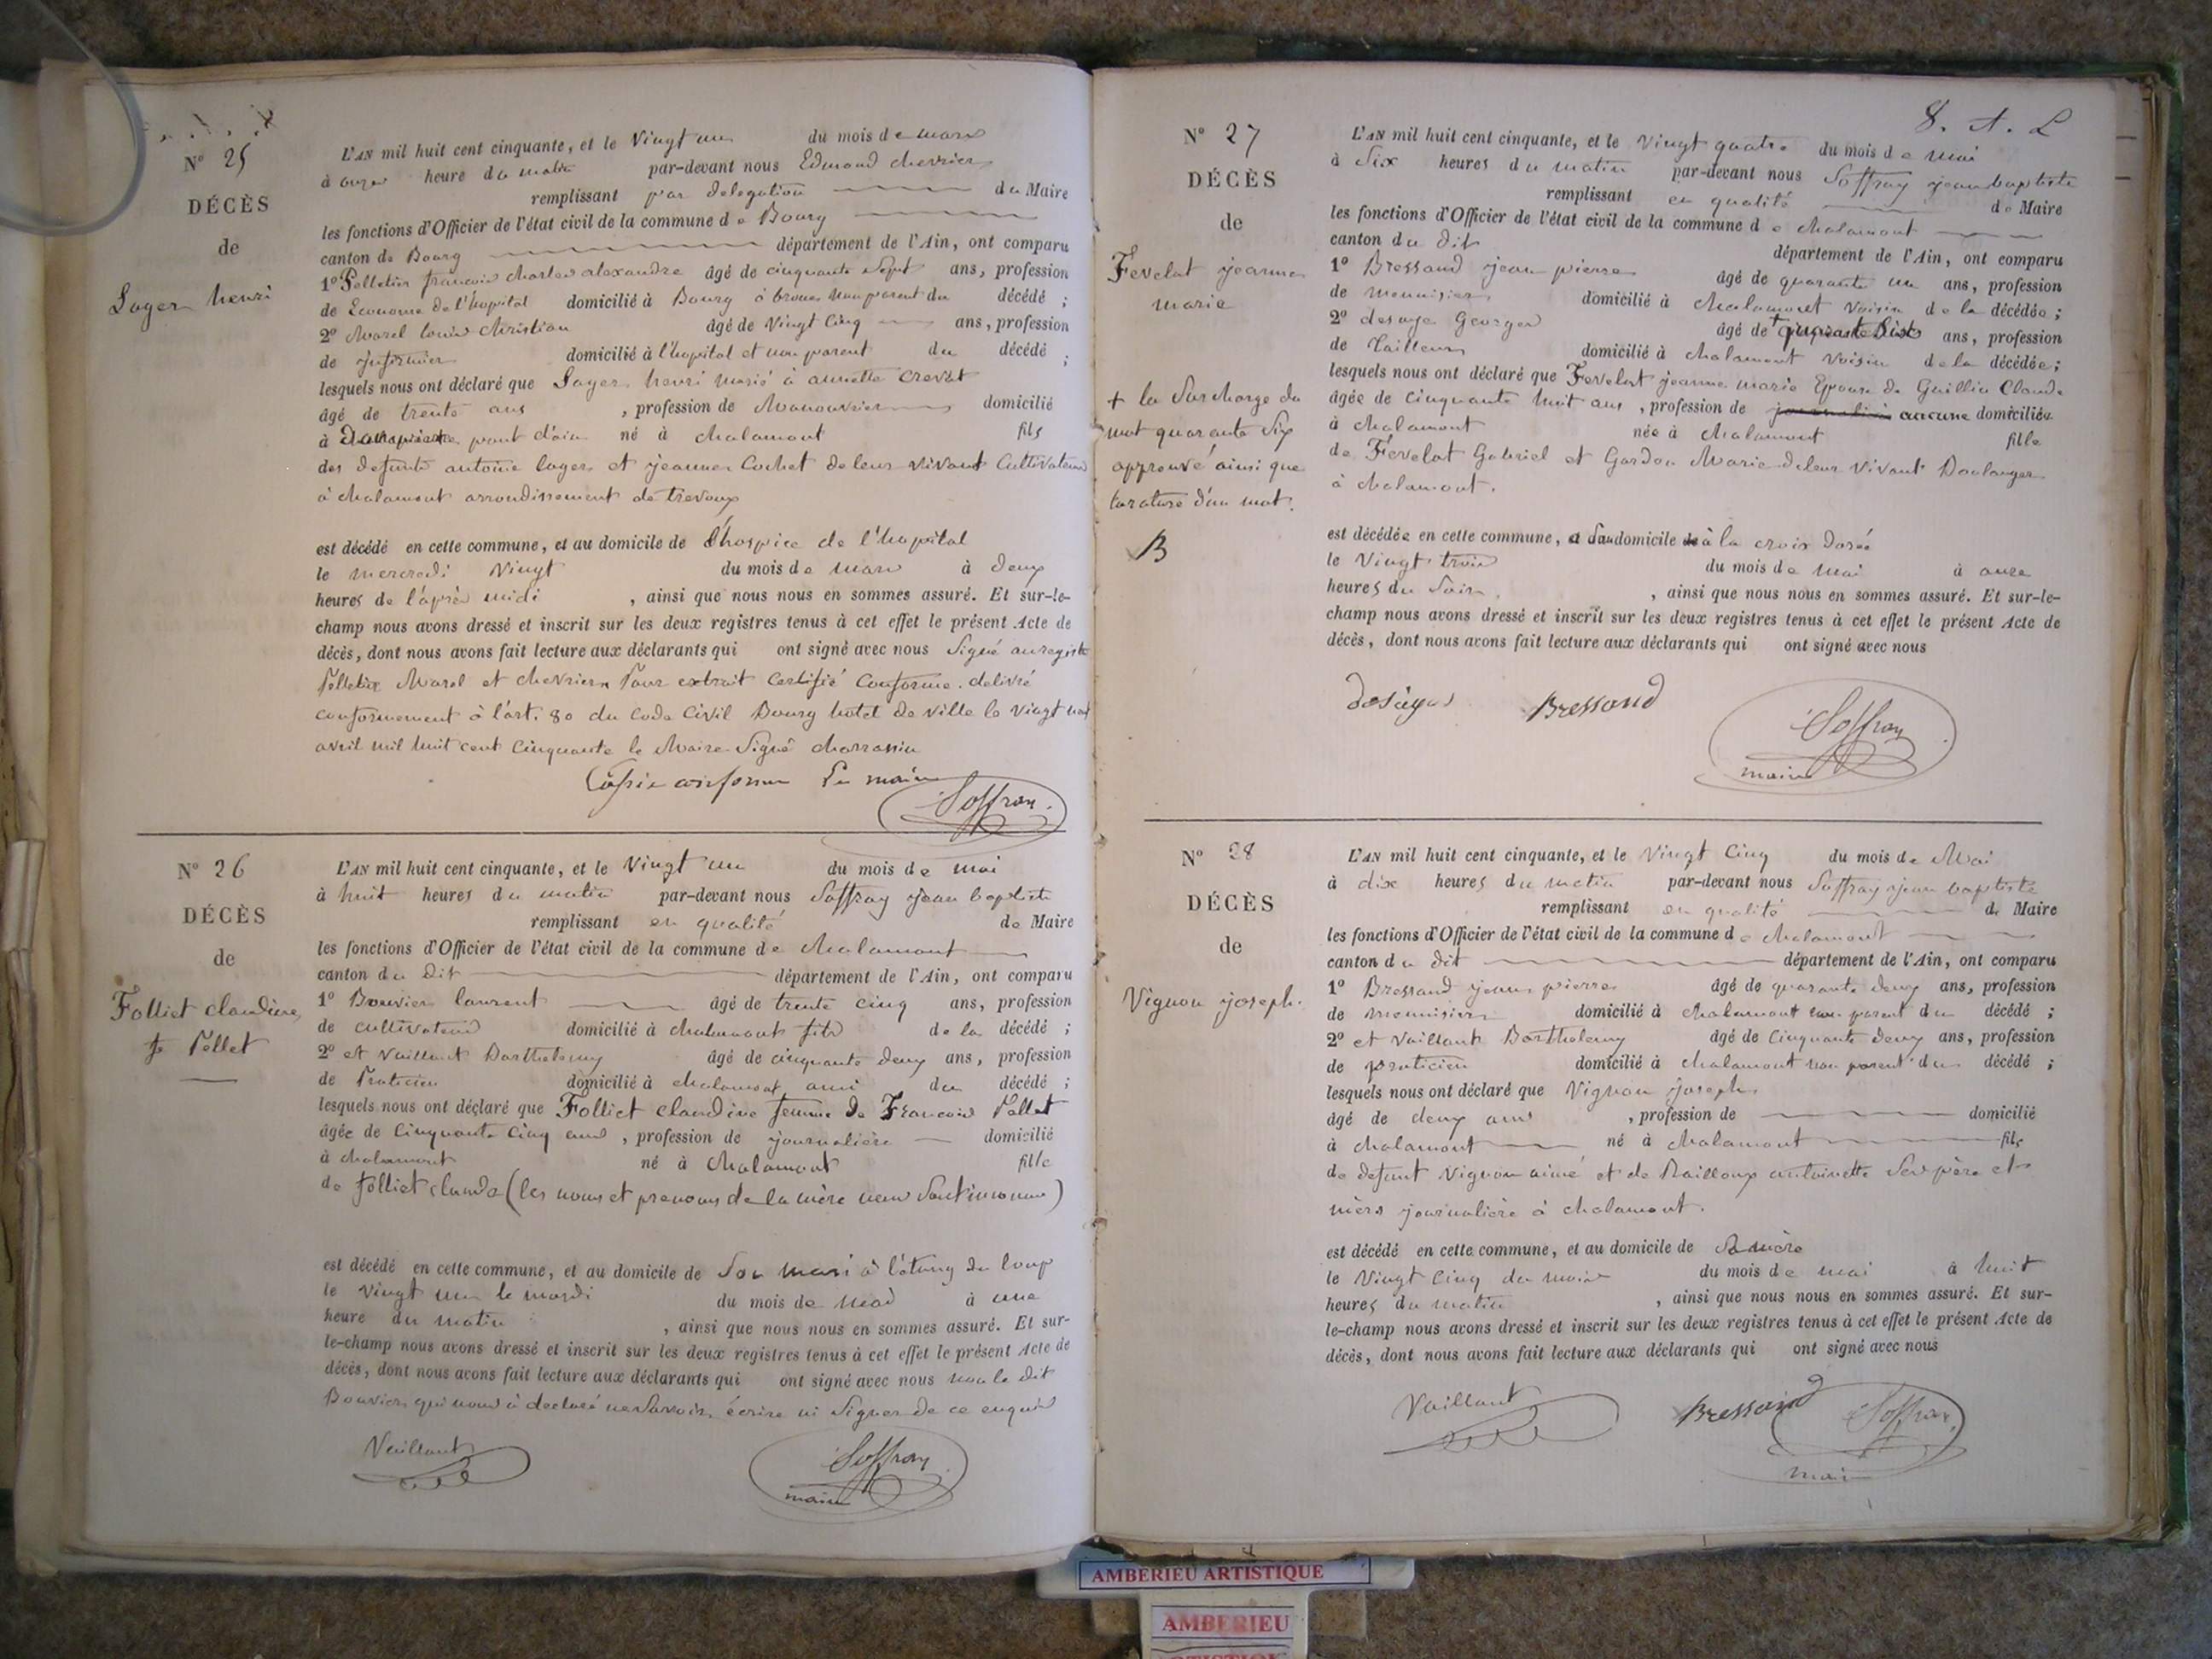 N° 25
DÉCÈS
de
Lager henri
L'AN mil huit cent cinquante, et le Vingt un du mois de mars
à onze heure du matin par-devant nous Edmond chevrier
remplissant par délégation du Maire
les fonctions d'Officier de l'état civil de la commune de Bourg
canton de Bourg département de l'Ain, ont comparu
1° Pelletier francois charles alexandre âgé de cinquante Sept ans, profession
de Econome de l'hopital domicilié à Bourg à brouas non parent du décédé ;
2° Marel louis christian âgé de Vingt Cinq ans, profession
de Infirmier domicilié à l'hopital et non parent du décédé ;
lesquels nous ont déclaré que Lager henri marié à annette crevat
âgé de trente ans , profession de Manouvrier domicilié
à pont d'ain né à chalamont fils
des defunts antoine lager et jeanne Cochet de leur vivant Cultivateurs
à chalamont arrondissement de trevoux
est décédé en cette commune, et au domicile de l'hospice de l'hopital
le mercredi Vingt du mois de mars à deux
heures de l'après midi , ainsi que nous nous en sommes assuré. Et sur-le-
champ nous avons dressé et inscrit sur les deux registres tenus à cet effet le présent Acte de
décès, dont nous avons fait lecture aux déclarants qui ont signé avec nous Signé au registre
Pelletier Marel et chevrier Pour extrait Certifié Conforme. delivré
conformement à l'art. 80 du Code Civil Bourg hotel de ville le Vingt
avril mil huit cent Cinquante le Maire Signé charrassin
Copie conforme Le maire
Soffray
N° 26
DÉCÈS
de
Folliet claudine
fe Pellet
L'AN mil huit cent cinquante, et le Vingt un du mois de mai
à huit heures du matin par-devant nous Soffray jean baptiste
remplissant en qualité de Maire
les fonctions d'Officier de l'état civil de la commune de chalamont
canton du dit département de l'Ain, ont comparu
1° Bouvier laurent âgé de trente cinq ans, profession
de cultivateur domicilié à chalamont fils de la décédé ;
2° et Vaillant Barthelemy âgé de cinquante deux ans, profession
de Praticien domicilié à chalamont ami du décédé ;
lesquels nous ont déclaré que Folliet claudine femme de Francois Pellet
âgée de Cinquante Cinq ans , profession de journalière domicilié
à chalamont né à chalamont fille
de folliet claude (les noms et prenoms de la mère nous sont inconnus)
est décédé en cette commune, et au domicile de Son mari à l'étang du loup
le vingt un le mardi du mois de mai à une
heure du matin , ainsi que nous nous en sommes assuré. Et sur-
le-champ nous avons dressé et inscrit sur les deux registres tenus à cet effet le présent Acte de
décès, dont nous avons fait lecture aux déclarants qui ont signé avec nous non le dit
Bouvier qui nous à declaré ne Savoir écrire ni Signer de ce enquis
Vaillant Soffray
maire
8. A. L
N° 27
DÉCÈS
de
Fevelat jeanne
marie
+ la Surcharge du
mot quarante Six
approuvé ainsi que
la rature d'un mot.
B
L'AN mil huit cent cinquante, et le Vingt quatre du mois de mai
à Six heures du matin par-devant nous Soffray jean baptiste
remplissant en qualité de Maire
les fonctions d'Officier de l'état civil de la commune de chalamont
canton du dit département de l'Ain, ont comparu
1° Bressand jean pierre âgé de quarante un ans, profession
de menuisier domicilié à chalamont Voisin de la décédée ;
2° desaye Georges âgé de + quarante Six ans, profession
de Tailleur domicilié à chalamont Voisin de la décédée ;
lesquels nous ont déclaré que Fevelat jeanne marie Epouse de Guillin Claude
âgée de cinquante huit ans , profession de aucune domiciliée
à chalamont née à chalamont fille
de Fevelat Gabriel et Gardon Marie de leur Vivant Boulanger
à chalamont.
est décédée en cette commune, a Son domicile à la croix dorée
le Vingt trois du mois de mai à onze
heures du Soir , ainsi que nous nous en sommes assuré. Et sur-le-
champ nous avons dressé et inscrit sur les deux registres tenus à cet effet le présent Acte de
décès, dont nous avons fait lecture aux déclarants qui ont signé avec nous
Bressand Soffray
maire
N° 28
DÉCÈS
de
Vignon joseph.
L'AN mil huit cent cinquante, et le Vingt Cinq du mois de Mai
à dix heures du matin par-devant nous Soffray jean baptiste
remplissant en qualité de Maire
les fonctions d'Officier de l'état civil de la commune de chalamont
canton du dit département de l'Ain, ont comparu
1° Bressand jean pierre âgé de quarante deux ans, profession
de menuisier domicilié à chalamont non parent du décédé ;
2° et Vaillant Barthelemy âgé de Cinquante deux ans, profession
de praticien domicilié à chalamont non parent du décédé ;
lesquels nous ont déclaré que Vignon joseph
âgé de deux ans , profession de domicilié
à chalamont né à chalamont fils
de defunt Vignon aimé et de Bailloux antoinette Ses père et
mère journalière à chalamont.
est décédé en cette commune, et au domicile de Sa mère
le Vingt Cinq du mois du mois de mai à huit
heures du matin , ainsi que nous nous en sommes assuré. Et sur-
le-champ nous avons dressé et inscrit sur les deux registres tenus à cet effet le présent Acte de
décès, dont nous avons fait lecture aux déclarants qui ont signé avec nous
Vaillant Bressand Soffray
maire
AMBERIEU ARTISTIQUE
AMBERIEU
ARTISTIQUE